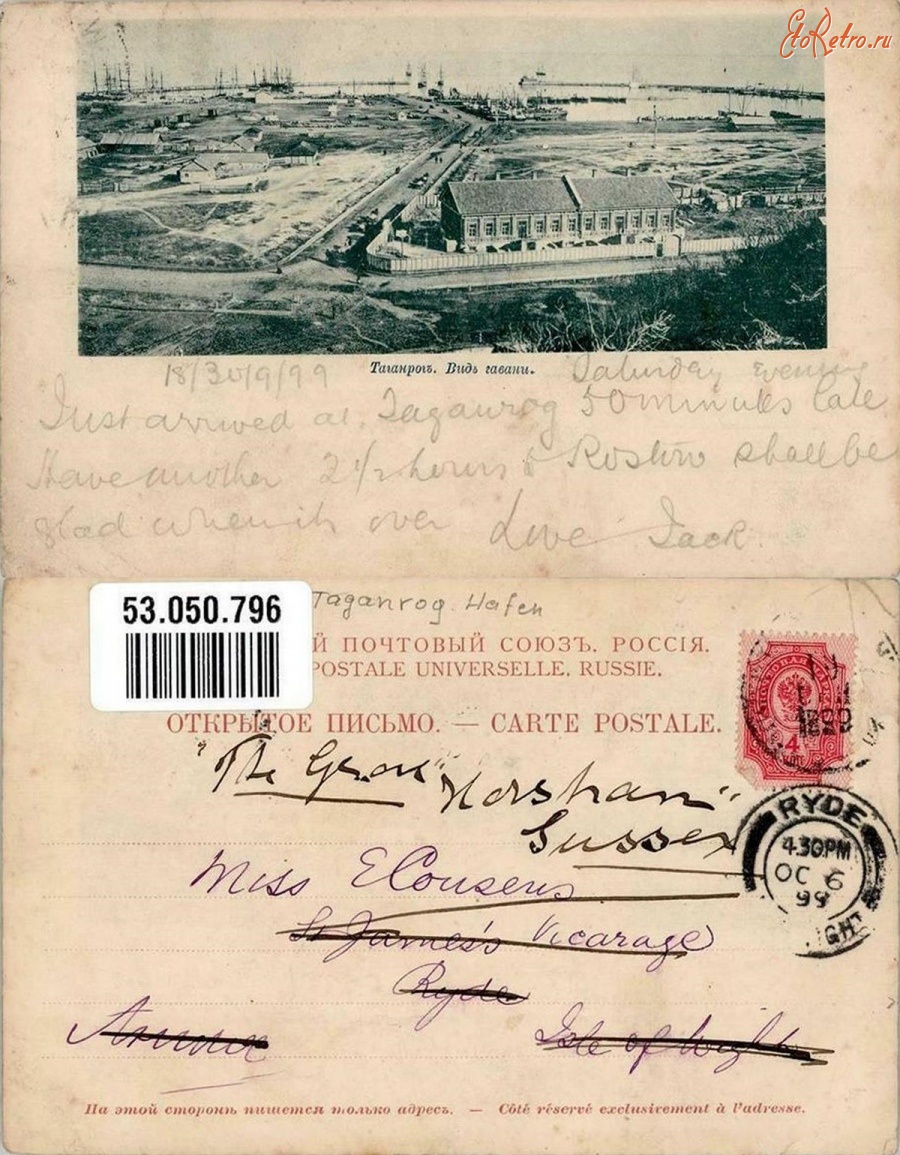 EtoRetro.ru
Таганрогъ. Видъ гавани.
18/30/9/99 Saturday evening
Just arrived at Taganrog 50 minutes late
Have another 2 1/2 hours to Rostov shall be
glad when its over Love Jack.
53.050.796
Taganrog. Hafen
Й ПОЧТОВЫЙ СОЮЗЪ. РОССІЯ.
POSTALE UNIVERSELLE. RUSSIE.
ОТКРЫТОЕ ПИСЬМО. — CARTE POSTALE.
4
"The
Horsham"
Sussex
RYDE
4.30PM
OC 6
99
IGHT
Miss E Cousens
St James's Vicarage
Ryde
Isle of Wight
На этой сторонѣ пишется только адресъ. — Côté réservé exclusivement à l'adresse.